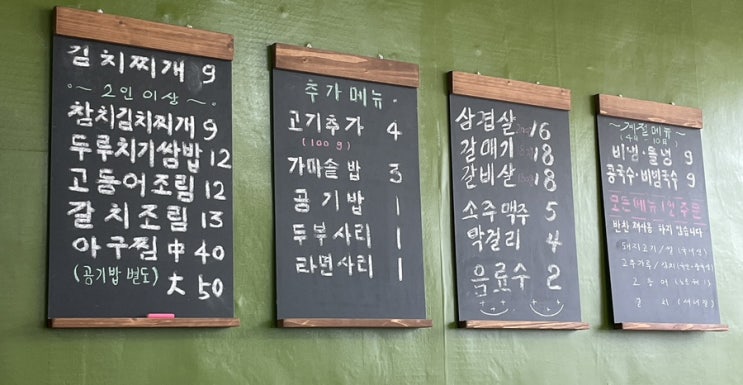 김치찌개 9
~ 2인 이상 ~
참치김치찌개 9
두루치기쌈밥 12
고등어조림 12
갈치조림 13
아구찜 中 40
(공기밥 별도) 大 50
추가 메뉴
고기추가 4
(100g)
가마솥밥 3
공기밥 1
두부사리 1
라면사리 1
삼겹살 16
갈매기 18
갈비살 18
소주맥주 5
막걸리 4
음료수 2
~계절메뉴~
(4월~10月)
비냉·물냉 9
콩국수·비빔국수 9
모든메뉴 1인 주문
반찬 재사용 하지 않습니다
돼지고기/
고추가루/
고등어
갈치